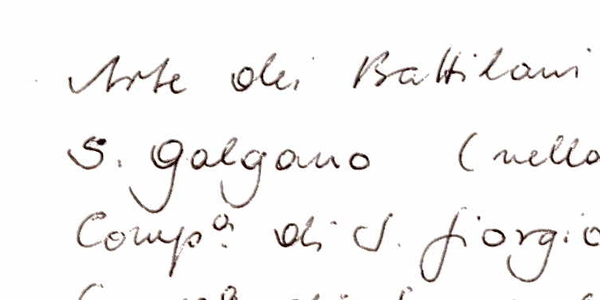 Arte dei Battilani
S. Galgano (nella
Compª. di S. Giorgio